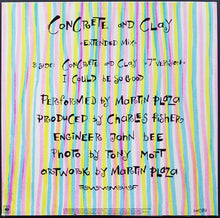 CONCRETE AND CLAY
-EXTENDED MIX-
B SIDE: CONCRETE AND CLAY -7" VERSION-
I COULD BE SO GOOD
PERFORMED BY MARTIN PLAZA
PRODUCED BY CHARLES FISHER
ENGINEER JOHN BEE
PHOTO BY TONY MOTT
ARTWORK BY MARTIN PLAZA